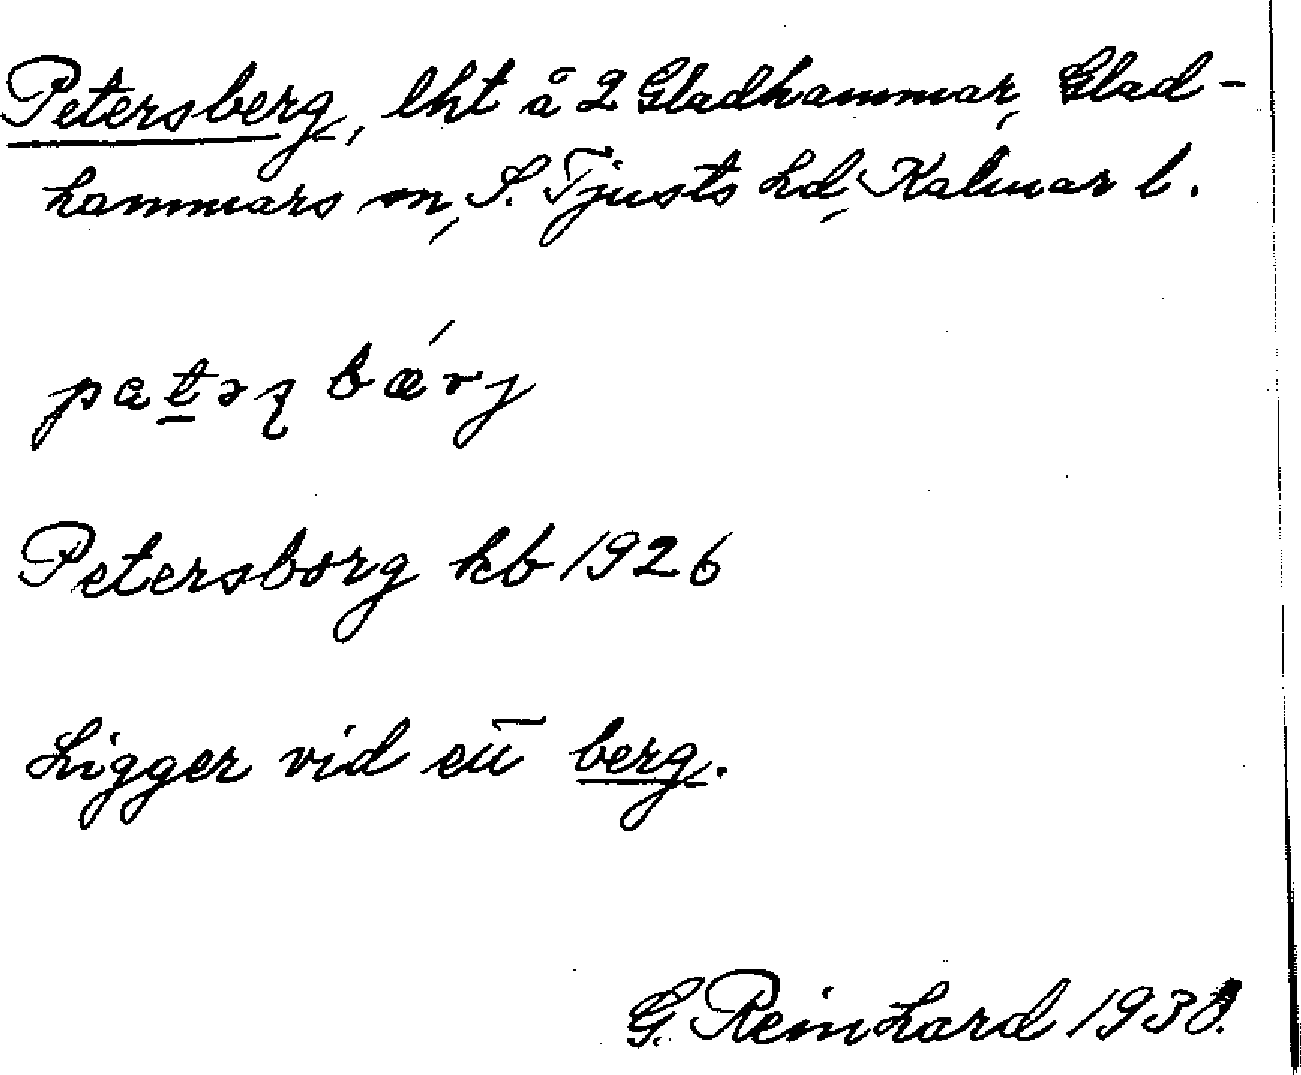 Petersberg, lht å 2 Gladhammar, Glad-
hammars sn, S. Tjusts hd, Kalmar l.
Petersborg kb 1926
Ligger vid ett berg.
G. Reinhard